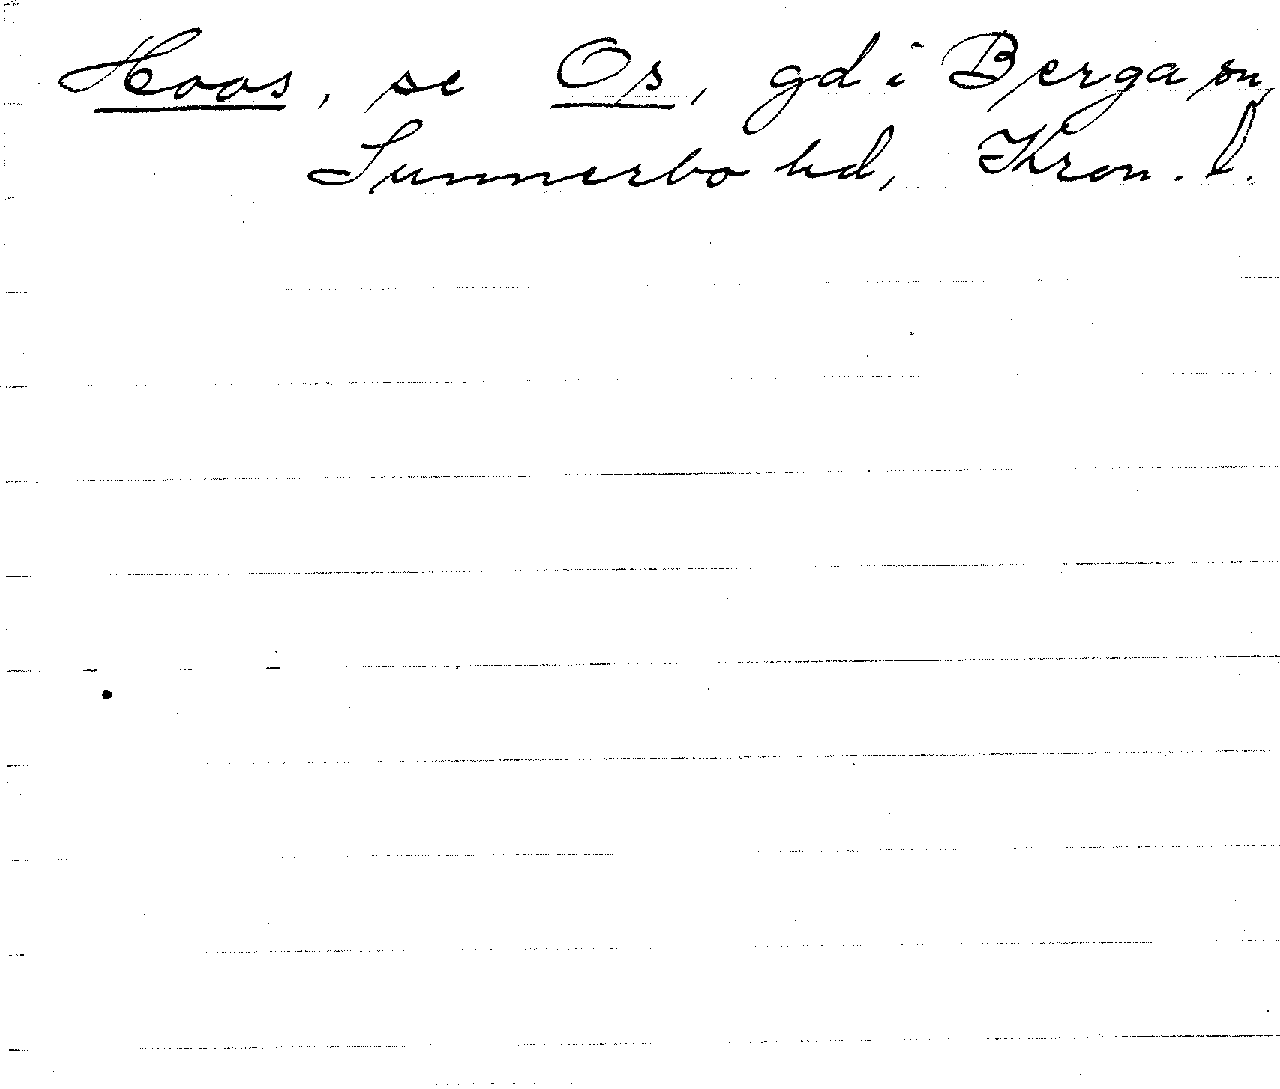 Hoos, se Os, gd i Berga sn,
Sunnerbo hd, Kron. l.